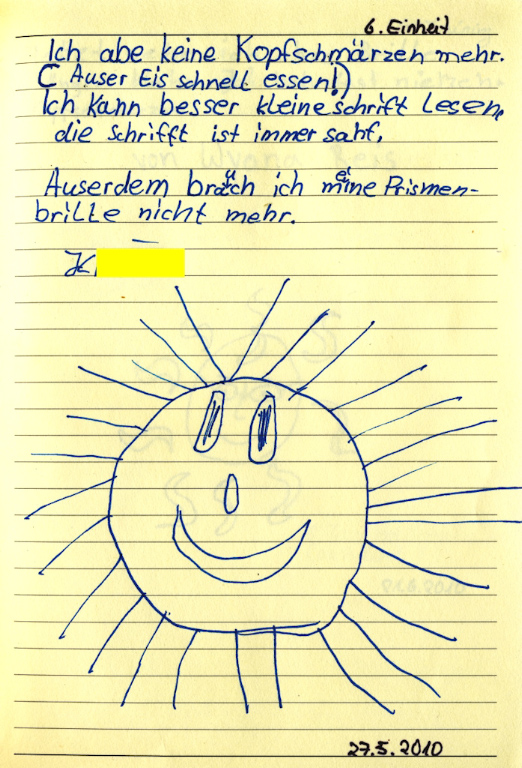 6. Einheit
Ich abe keine Kopfschmärzen mehr.
( Auser Eis schnell essen!)
Ich kann besser kleine schrift Lesen,
die schrifft ist immer schaf.
Auserdem bräuch ich meine Prismen-
brille nicht mehr.
27.5.2010